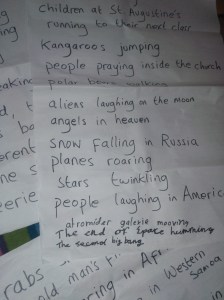 children at St Augustine's
running to their next class
Kangaroos jumping
people praying inside the church
aliens laughing on the moon
angels in heaven
snow falling in Russia
planes roaring
stars twinkling
people laughing in America
galerie mooving
The end of space humming
The second big bang
old man's
in Western
Samoa